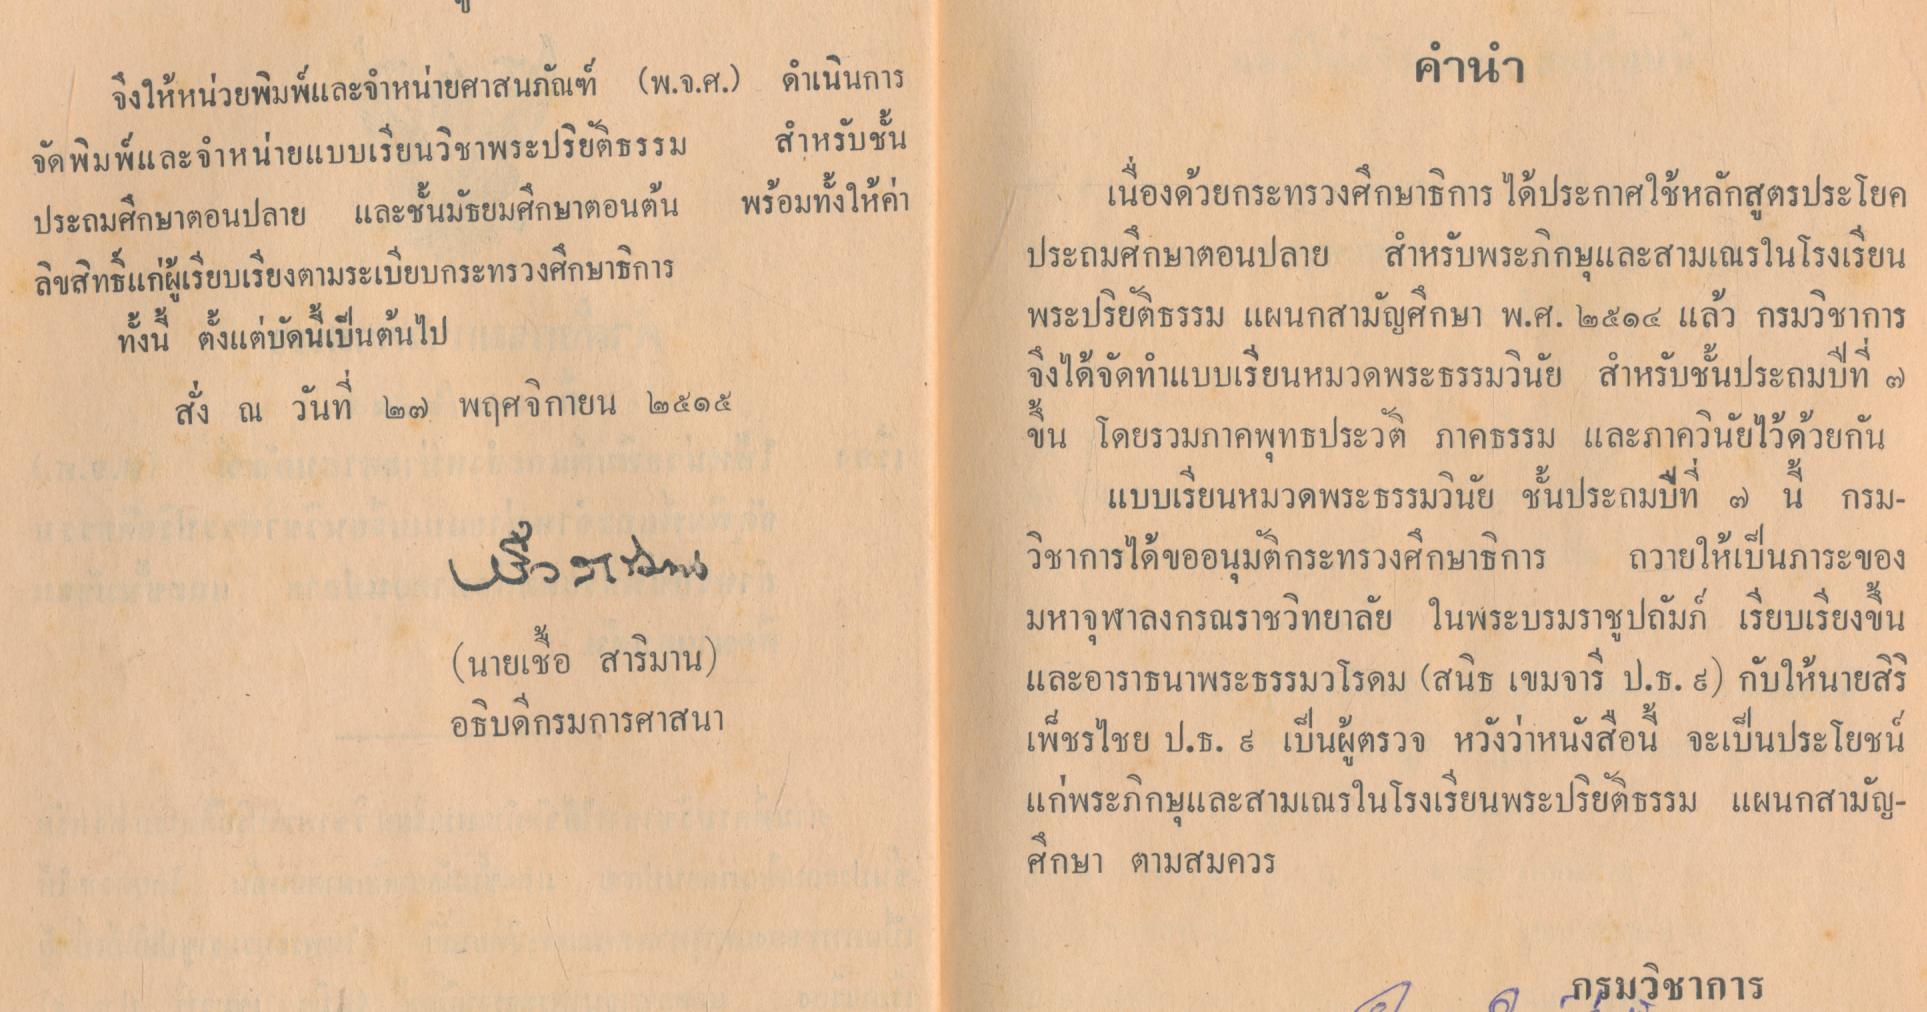 จึงให้หน่วยพิมพ์และจำหน่ายศาสนภัณฑ์ (พ.จ.ศ.) ดำเนินการ
จัดพิมพ์และจำหน่ายแบบเรียนวิชาพระปริยัติธรรม สำหรับชั้น
ประถมศึกษาตอนปลาย และชั้นมัธยมศึกษาตอนต้น พร้อมทั้งให้ค่า
ลิขสิทธิ์แก่ผู้เรียบเรียงตามระเบียบกระทรวงศึกษาธิการ
ทั้งนี้ ตั้งแต่บัดนี้เป็นต้นไป
สั่ง ณ วันที่ ๒๗ พฤศจิกายน ๒๕๑๕
(นายเชื้อ สาริมาน)
อธิบดีกรมการศาสนา
คำนำ
เนื่องด้วยกระทรวงศึกษาธิการ ได้ประกาศใช้หลักสูตรประโยค
ประถมศึกษาตอนปลาย สำหรับพระภิกษุและสามเณรในโรงเรียน
พระปริยัติธรรม แผนกสามัญศึกษา พ.ศ. ๒๕๑๔ แล้ว กรมวิชาการ
จึงได้จัดทำแบบเรียนหมวดพระธรรมวินัย สำหรับชั้นประถมปีที่ ๗
ขึ้น โดยรวมภาคพุทธประวัติ ภาคธรรม และภาควินัยไว้ด้วยกัน
แบบเรียนหมวดพระธรรมวินัย ชั้นประถมปีที่ ๗ นี้ กรม-
วิชาการได้ขออนุมัติกระทรวงศึกษาธิการ ถวายให้เป็นภาระของ
มหาจุฬาลงกรณราชวิทยาลัย ในพระบรมราชูปถัมภ์ เรียบเรียงขึ้น
และอาราธนาพระธรรมวโรดม (สนิธ เขมจารี ป.ธ. ๙) กับให้นายสิริ
เพ็ชรไชย ป.ธ. ๙ เป็นผู้ตรวจ หวังว่าหนังสือนี้ จะเป็นประโยชน์
แก่พระภิกษุและสามเณรในโรงเรียนพระปริยัติธรรม แผนกสามัญ-
ศึกษา ตามสมควร
กรมวิชาการ